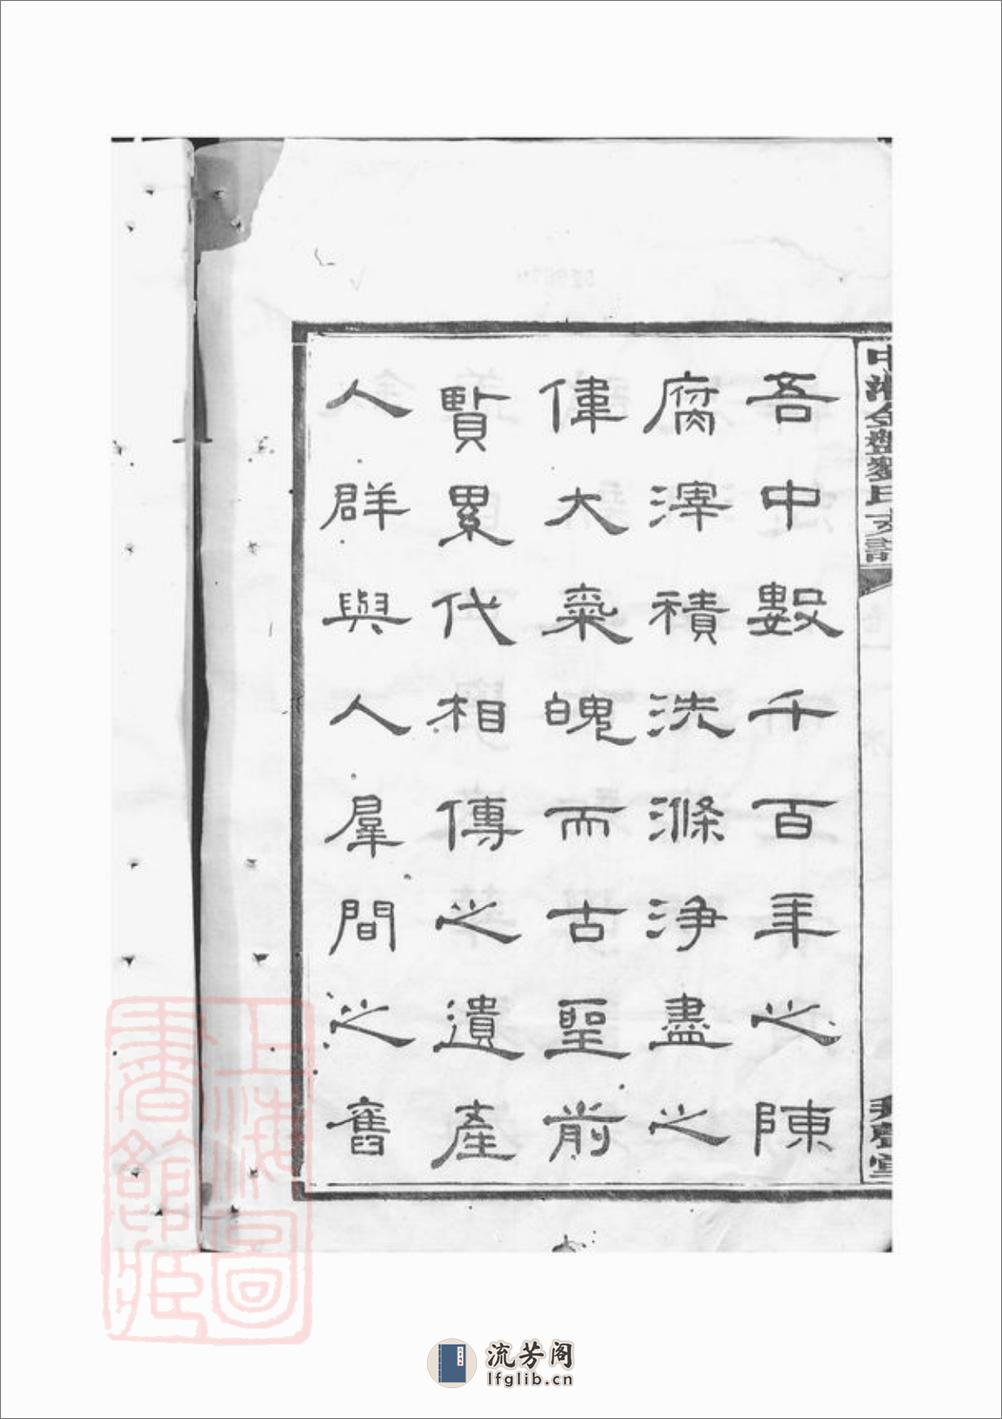 吾中數千百年之陳
腐滓積洗滌淨盡之
偉大氣魄而古聖前
賢累代相傳之遺產
人群與人羣間之舊
氏支譜
上海圖書館藏
流芳阁
lfglib.cn